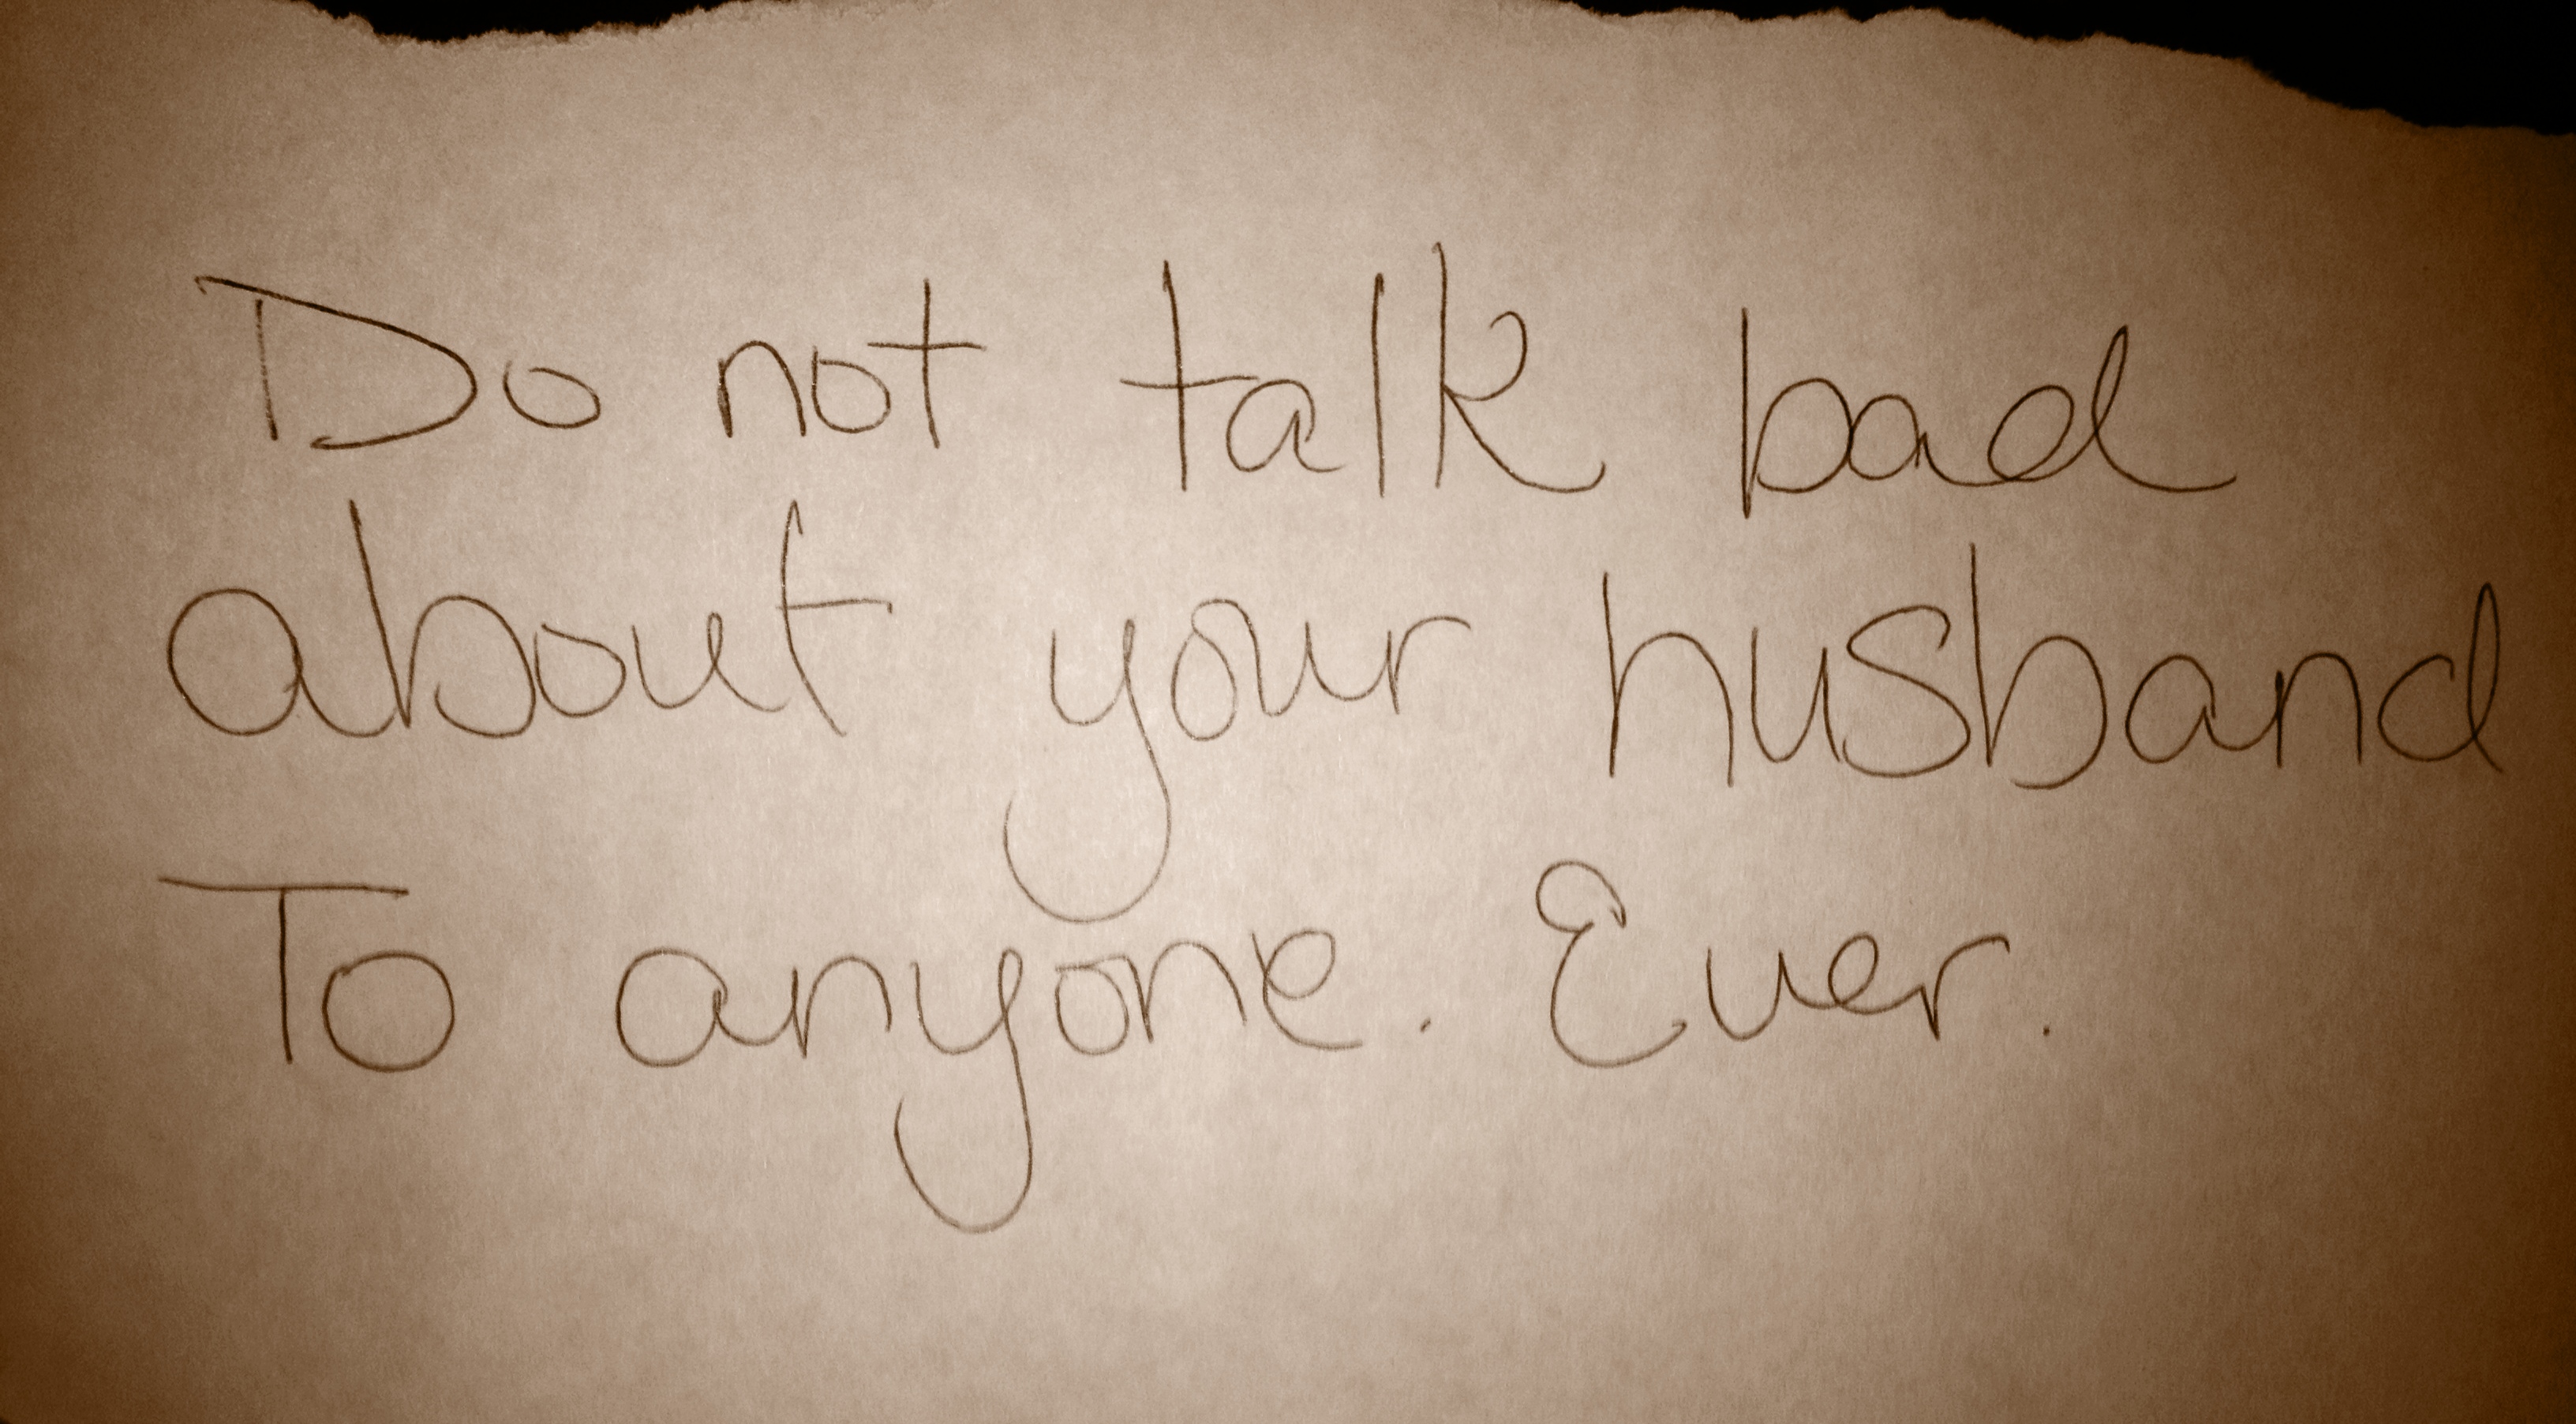 Do not talk bad
about your husband
To anyone. Ever.